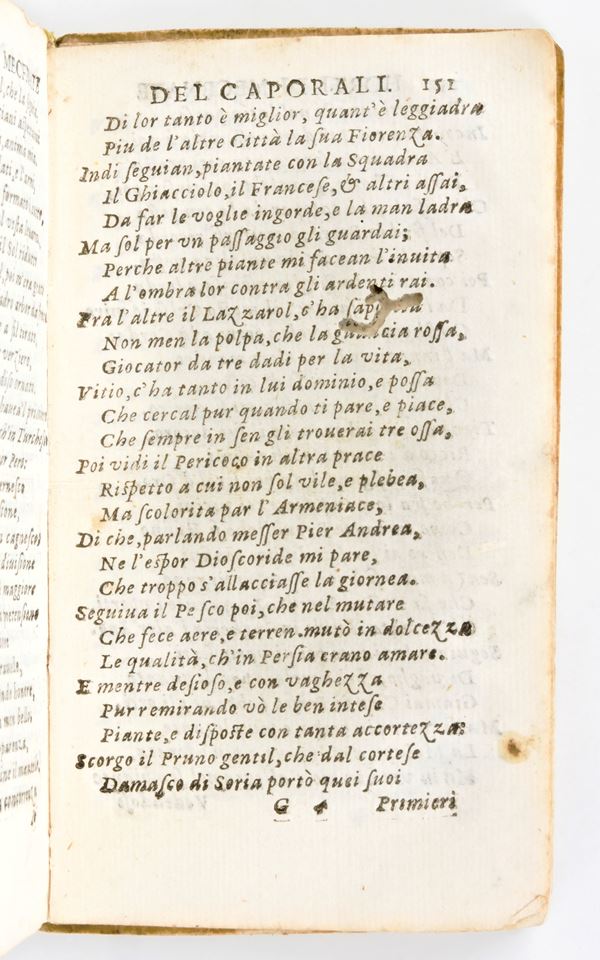 MECENATE
DEL CAPORALI. 151
Di lor tanto è miglior, quant'è leggiadra
Piu de l'altre Città la ſua Fiorenza.
Indi ſeguian, piantate con la Squadra
Il Ghiacciolo, il Franceſe, & altri aſſai,
Da far le voglie ingorde, e la man ladra
Ma ſol per vn paſſaggio gli guardai;
Perche altre piante mi facean l'inuito
A l'ombra lor contra gli ardenti rai.
Fra l'altre il Lazzarol, c'ha
Non men la polpa, che la guancia roſſa,
Giocator da tre dadi per la vita,
Vitio, c'ha tanto in lui dominio, e poſſa
Che cercal pur quando ti pare, e piace,
Che ſempre in ſen gli trouerai tre oſſa,
Poi vidi il Pericoco in altra prace
Riſpetto a cui non ſol vile, e plebea,
Ma ſcolorita par l'Armeniace,
Di che, parlando meſſer Pier Andrea,
Ne l'eſpor Dioſcoride mi pare,
Che troppo s'allacciaſſe la giornea.
Seguiua il Peſco poi, che nel mutare
Che fece aere, e terren mutò in dolcezza
Le qualità, ch'in Perſia erano amare.
E mentre deſioſo, e con vaghezza
Pur remirando vò le ben inteſe
Piante, e diſpoſte con tanta accortezza:
Scorgo il Pruno gentil, che dal corteſe
Damaſco di Soria portò quei ſuoi
G 4 Primieri